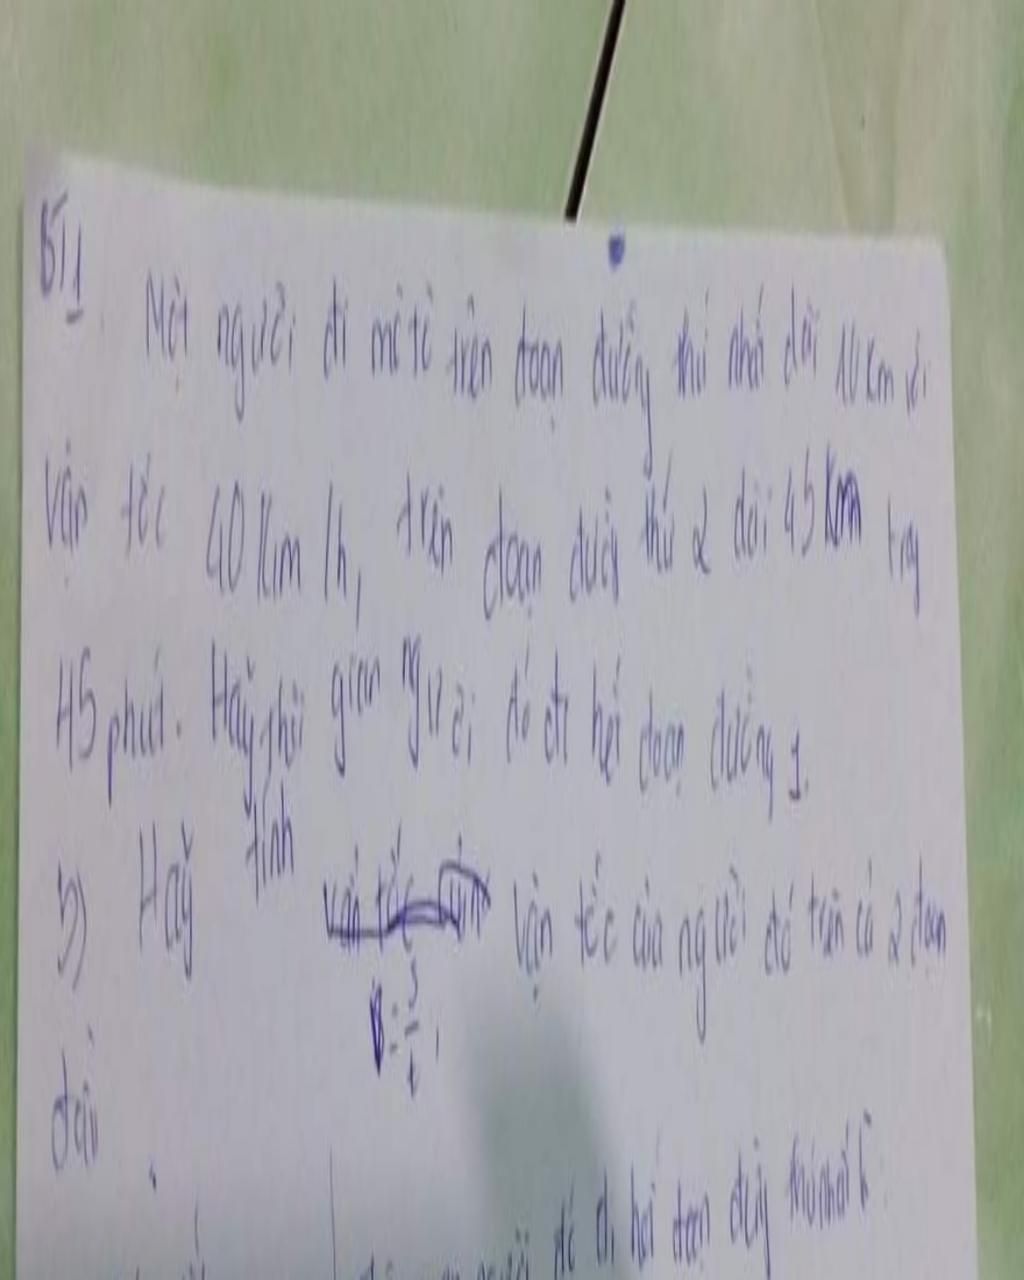 BT1
Một người đi mô tô trên đoạn đường thứ nhất dài 10 km với
vận tốc 40 km/h, trên đoạn đường thứ 2 dài 45 km trong
45 phút. Hãy thời gian người đó đi hết đoạn đường 1.
b) Hãy tính vận tốc của người đó trên cả 2 đoạn
v = s/t
đó đi hết đoạn đường thứ nhất